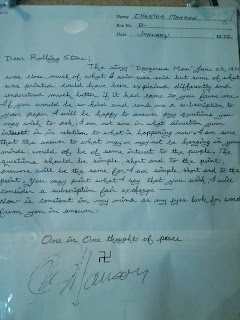 Name CHARLES MANSON
Box No. B-
Date JANUARY 1972
Dear Rolling Stone;
The story "Dangerous Man" June 25, 197
was close, much of what I said was said but some of what
was printed could have been explained differently and
understood much better if it had come to you from me.
If you would be so kind and send me a subscription to
your paper I will be happy to answer any questions you
may wish to ask, I am not sure in what direction your
interest is in relation to what is happening now. I am sure
that the answer to what may or may not be hanging in your
minds, would be of some interest to the people. The
questions should be simple, short and to the point,
answers will be the same for I am simple, short and to the
point. You may print what I say that you wish & will
consider a subscription fair exchange —
Now is constant in my mind as my eyes look for word
from you in answer.
One in One thought of peace
卍
C Manson